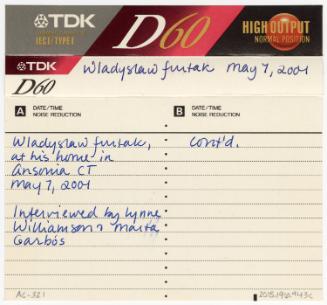 TDK
IECI/TYPE I
D60
HIGH OUTPUT
NORMAL POSITION
TDK
Wladyslaw furtak May 7, 2001
D60
A DATE/TIME
NOISE REDUCTION
B DATE/TIME
NOISE REDUCTION
Wladyslaw furtak,
at his home in
Ansonia CT
May 7, 2001
Interviewed by Lynne
Williamson & Marta
Garbós
cont'd.
AC-321
2015.196.943c